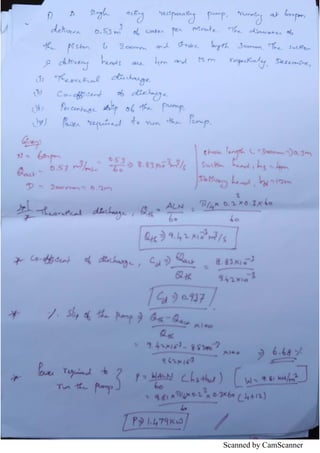 1) A Single acting reciprocating pump, running at 60rpm
delivers 0.53 m³ of water per minute. The diameter of
the piston is 200mm and stroke length 300mm. The suction
& delivery heads are 4m and 12m respectively. Determine,
(i) Theoretical discharge
(ii) Co-efficient of discharge
(iii) Percentage slip of the pump
(iv) Power required to run the Pump.
Given:
N = 60rpm
Qact = 0.53 m³/min = 0.53/60 ⇒ 8.83×10⁻³ m³/s
D = 200mm = 0.2m
stroke length L = 300mm ⇒ 0.3m
Suction head, hs = 4m
Delivery head, hd = 12m
Sol
* Theoretical discharge, Qth = ALN/60 = π/4 × 0.2² × 0.3 × 60 / 60
Qth ⇒ 9.42×10⁻³ m³/s
* Co-efficient of discharge, Cd ⇒ Qact/Qth = 8.83×10⁻³ / 9.42×10⁻³
Cd ⇒ 0.937
* % Slip of the pump ⇒ Qth - Qact / Qth ×100
= 9.42×10⁻³ - 8.83×10⁻³ / 9.42×10⁻³ ×100 ⇒ 6.68%
* Power required to run the pump } P = WALN/60 (hs+hd) [W = 9.81 kN/m³]
= 9.81 × π/4 × 0.2² × 0.3×60 / 60 (4+12)
P ⇒ 1.479 KW
Scanned by CamScanner